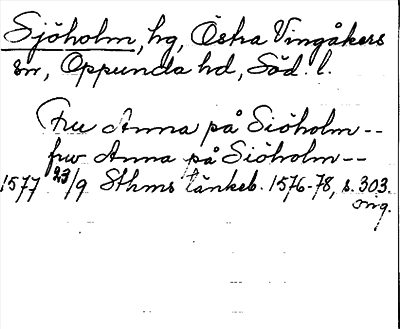 Sjöholm, hg, Östra Vingåkers
sn, Oppunda hd, Söd. l.
Fru Anna på Siöholm --
frw Anna på Siöholm --
1577 23/9 Sthms tänkeb. 1576-78, s. 303.
orig.